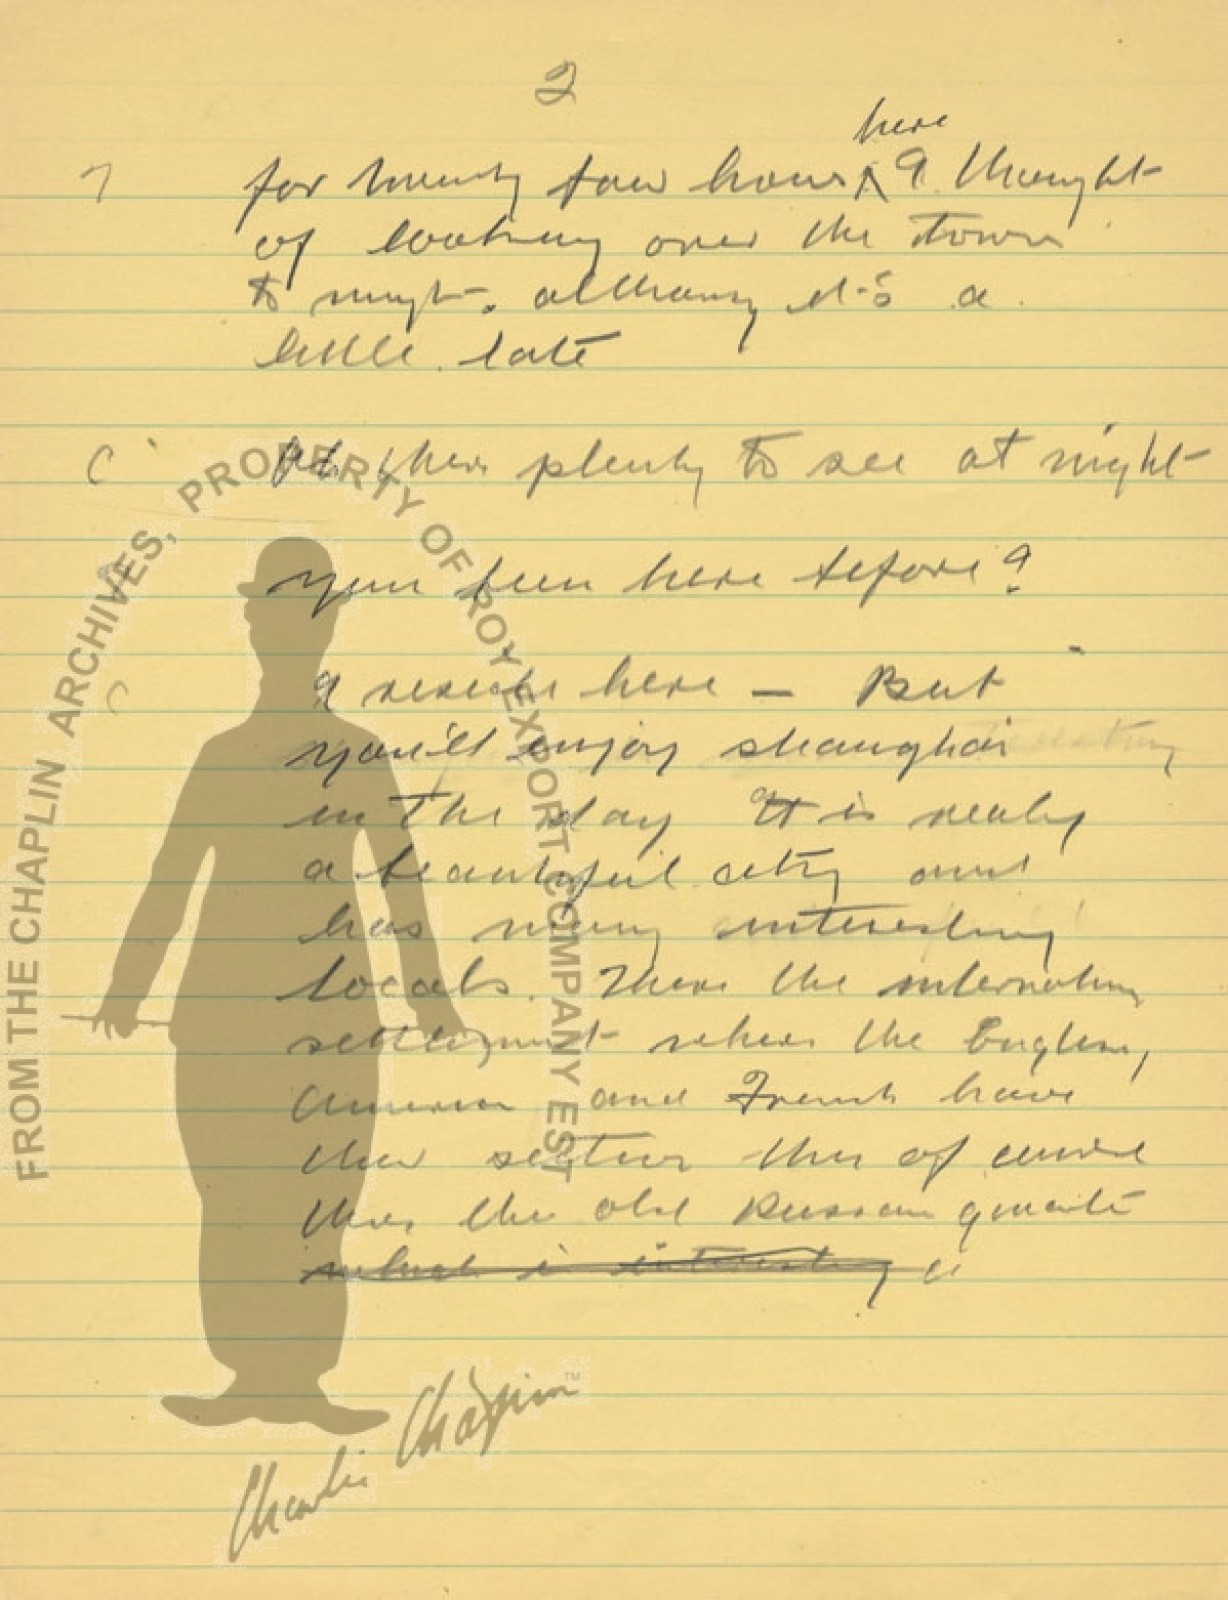 2
here
7 for twenty four hours ^ I thought
of looking over the town
to night. although it's a
little late
C Oh theres plenty to see at night
you been here before?
C I reside here — But
you'll enjoy shanghai
in the day It is really
a beautiful city and
has many interesting
locals. Theres the
settlement where the English,
America and French have
their section then of course
theres the old Russian quarter
which is interesting
FROM THE CHAPLIN ARCHIVES, PROPERTY OF ROY EXPORT COMPANY EST
Charlie Chaplin™